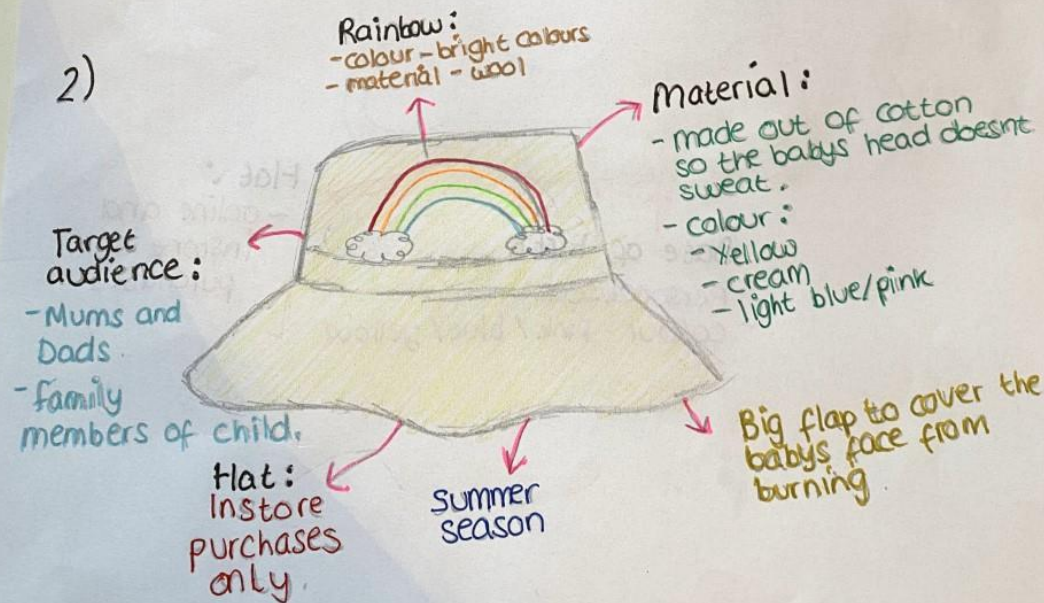 2)
Rainbow:
-colour-bright colours
- material - wool
Material:
- made out of cotton
so the babys head doesnt
sweat.
- colour:
- Yellow
- cream
- light blue/pink
Target
audience:
- Mums and
Dads.
- family
members of child.
Hat:
Instore
purchases
only.
Summer
season
Big flap to cover the
babys face from
burning.